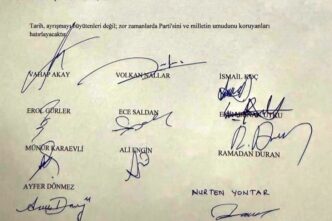 Tarih, ayrışmayı büyütenleri değil; zor zamanlarda Parti'sini ve milletin umudunu koruyanları
hatırlayacaktır.
VAHAP AKAY VOLKAN NALLAR İSMAİL KOÇ
EROL GÜRLER ECE SALDAN
MÜNÜR KARAEVLİ ALİ ENGİN RAMADAN DURAN
AYFER DÖNMEZ NURTEN YONTAR